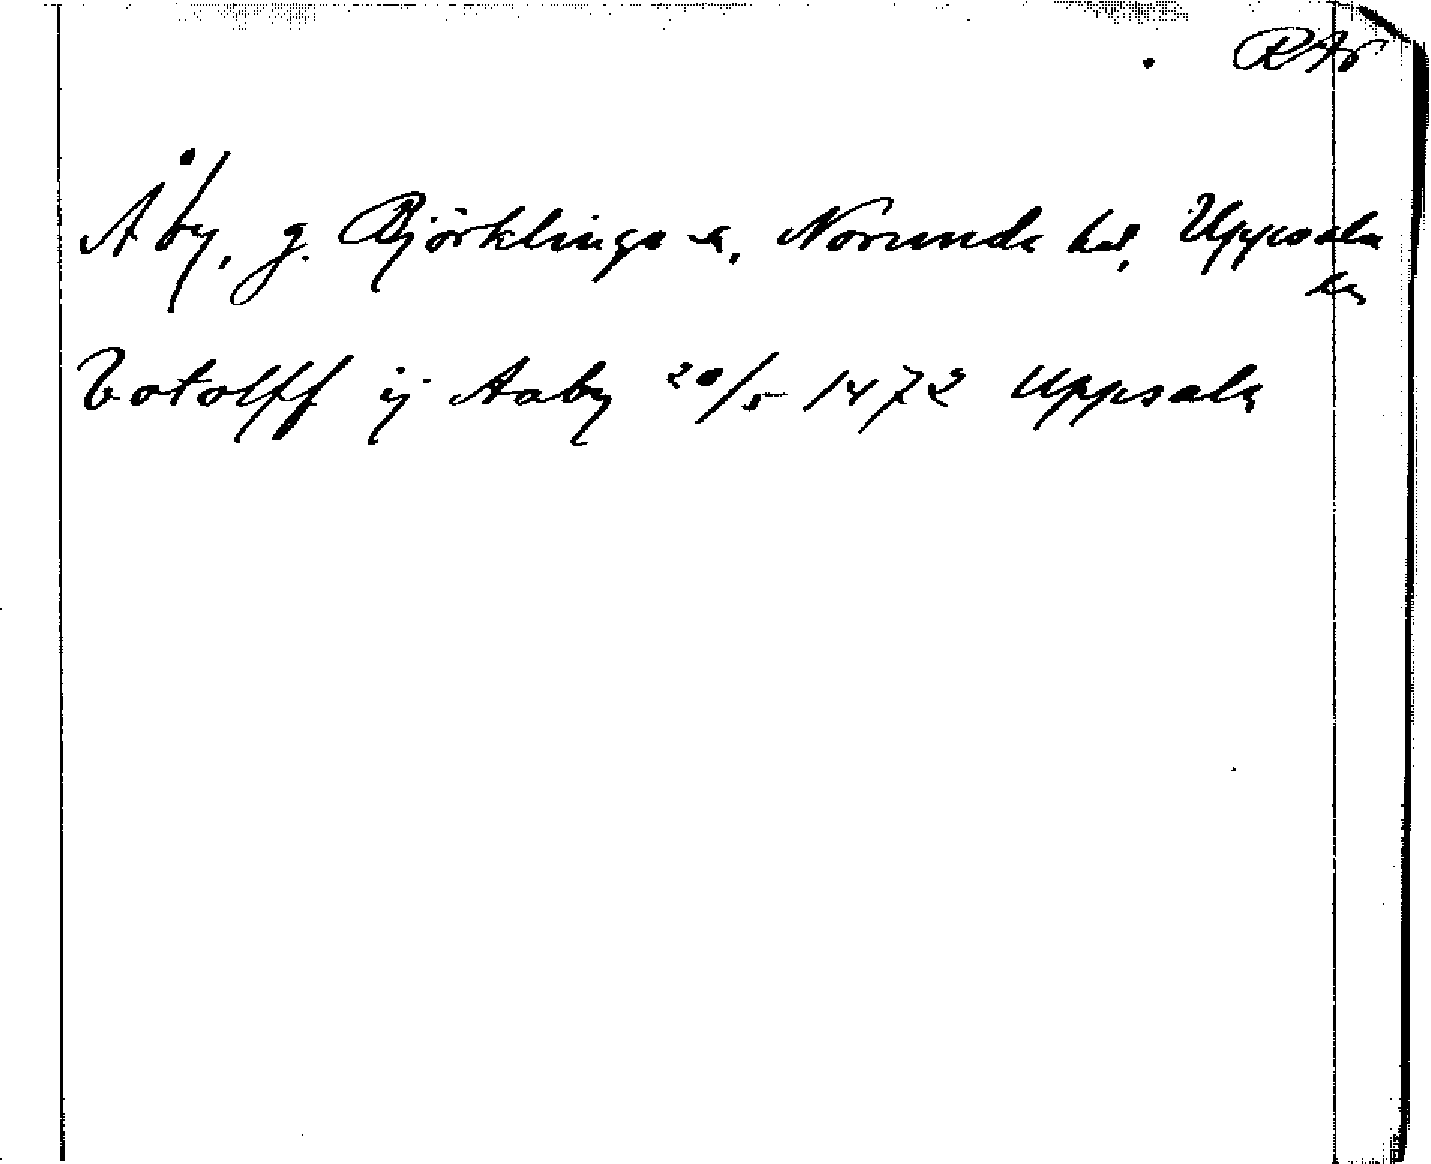 RAp
Åby, g. Björklinge sn, Norunda hd, Uppsala
län
Botolff ij Aaby 20/5 1472 Uppsala